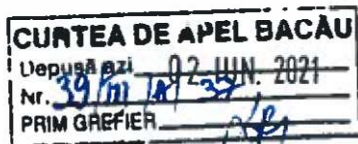 CURTEA DE APEL BACĂU
Depusă azi 02 IUN. 2021
Nr. 39/III/A/37
PRIM GREFIER